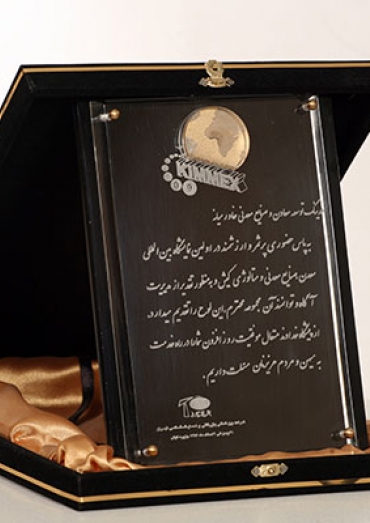 KIMMEX
هلدینگ توسعه معادن و صنایع معدنی خاورمیانه
به پاس حضوری پرثمر و ارزشمند در اولین نمایشگاه بین المللی
معدن، صنایع معدنی و متالوژی کیش و بمنظور تقدیر از مدیریت
آگاه و توانمند آن مجموعه محترم، این لوح را تقدیم میدارد.
از پیشگاه خداوند متعال موفقیت روز افزون شما را در راه خدمت
به میهن و مردم عزیزمان مسئلت داریم.